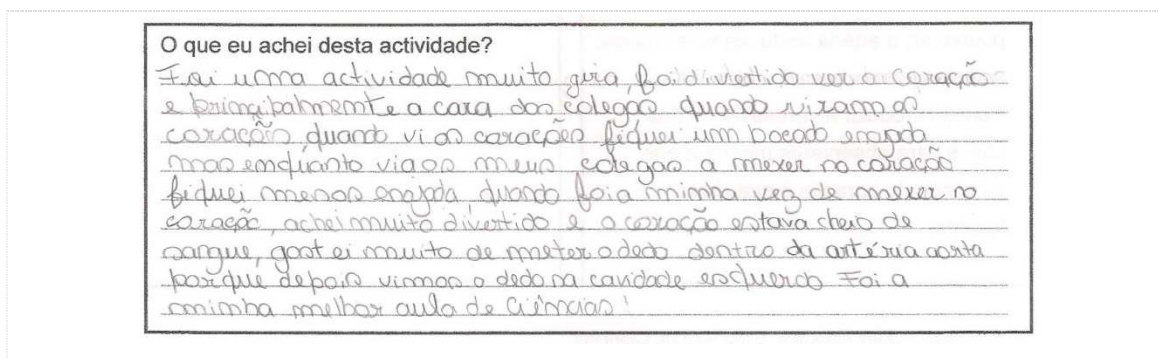 O que eu achei desta actividade?
Foi uma actividade muito gira, foi divertido ver o coração
e principalmente a cara dos colegas quando viram os
corações, quando vi os corações fiquei um bocado enojada
mas enquanto via os meus colegas a mexer no coração
fiquei menos enojada, quando foi a minha vez de mexer no
coração, achei muito divertido e o coração estava cheio de
sangue, gostei muito de meter o dedo dentro da artéria aorta
porque depois vimos o dedo na cavidade esquerda Foi a
minha melhor aula de Ciências!